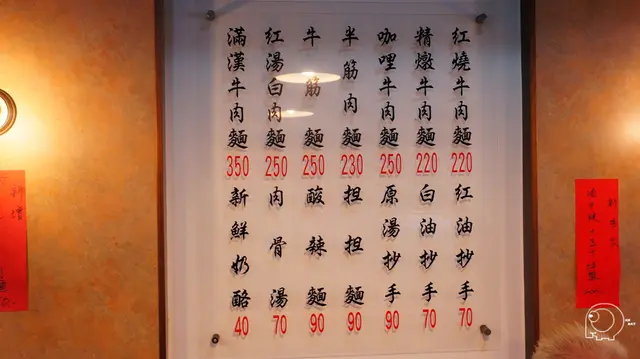 紅燒牛肉麵 220
精燉牛肉麵 220
咖哩牛肉麵 250
半筋肉麵 230
牛筋麵 250
紅湯白肉麵 250
滿漢牛肉麵 350
紅油抄手 70
白油抄手 70
原湯抄手 90
担担麵 90
酸辣麵 90
肉骨湯 70
新鮮奶酪 40
新增